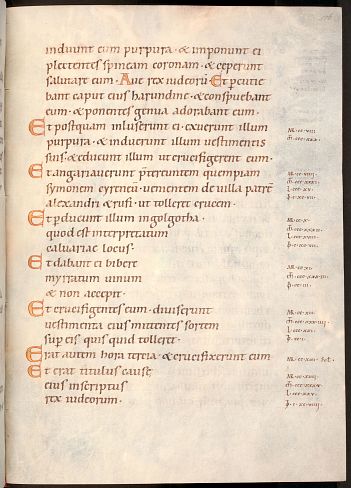 induunt eum purpura · & imponunt ei
plectentes spineam coronam · & ceperunt
salutare eum · Aue rex iudeorū Et pcutie
bant caput eius harundine · & conspuebant
eum · & ponentes genua adorabant eum ·
Et postquam inluserunt ei · exuerunt illum
purpura · & induerunt illum uestimentis
suis · & educunt illum ut crucifigerent eum ·
Et angariauerunt pretereuntem quempiam
symonem cyreneū uenientem de uilla patrē
alexandri & rufi · ut tolleret crucem ·
Et pducunt illum in golgotha ·
quod est interpretatum
caluariae locus ·
Et dabant ei bibere
myrratum uinum
& non accepit ·
Et crucifigentes eum · diuiserunt
uestimenta eius mittentes sortem
sup eis quis quid tolleret ·
Erat autem hora tercia · & crucifixerunt eum
Et erat titulus cause
eius inscriptus
rex iudeorum ·